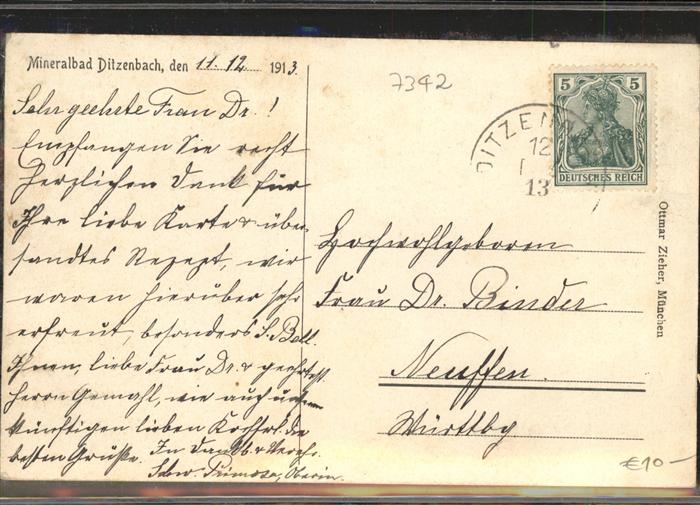 Mineralbad Ditzenbach, den 11. 12. 1913.
Sehr geehrte Frau Dr.!
Empfangen Sie recht
herzlichen Dank für
Ihre liebe Karte & über-
sandtes Rezept, wir
waren hierüber sehr
erfreut, besonders S. Bell.
Ihnen, liebe Frau Dr. & geehrtest.
Herrn Gemahl, wie auch
künftigen lieben die
besten Grüße. In Dankb. & Verehr.
Schw. Primosa, Oberin.
7342
DITZENB
12
13
5 5
DEUTSCHES REICH
Hochwohlgeboren
Frau Dr. Binder
Neuffen.
Württbg
Ottmar Zieher, München
€10-